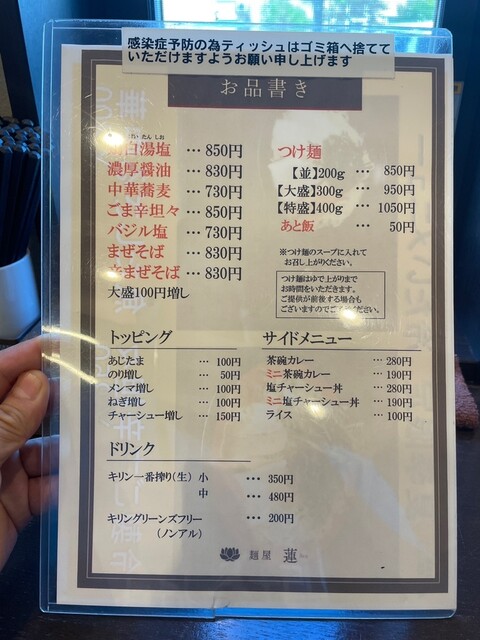 感染症予防の為ティッシュはゴミ箱へ捨てて
いただけますようお願い申し上げます
お品書き
白湯塩 … 850円
濃厚醤油 … 830円
中華蕎麦 … 730円
ごま辛坦々 … 850円
バジル塩 … 730円
まぜそば … 830円
辛まぜそば … 830円
大盛100円増し
つけ麺
【並】200g … 850円
【大盛】300g … 950円
【特盛】400g … 1050円
あと飯 … 50円
※つけ麺のスープに入れて
お召し上がりください。
つけ麺はゆで上がりまで
お時間をいただきます。
ご提供が前後する場合も
ございますのでご
トッピング
あじたま … 100円
のり増し … 50円
メンマ増し … 100円
ねぎ増し … 100円
チャーシュー増し … 150円
サイドメニュー
茶碗カレー … 280円
ミニ茶碗カレー … 190円
塩チャーシュー丼 … 280円
ミニ塩チャーシュー丼 … 190円
ライス … 100円
ドリンク
キリン一番搾り(生) 小 … 350円
中 … 480円
キリングリーンズフリー … 200円
(ノンアル)
麺屋 蓮